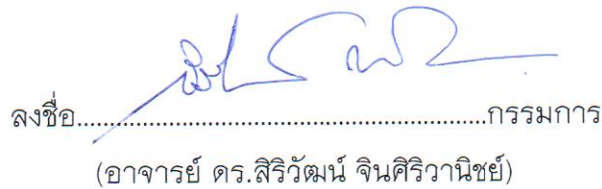 ลงชื่อ......................................................กรรมการ
(อาจารย์ ดร.สิริวัฒน์ จินศิริวานิชย์)